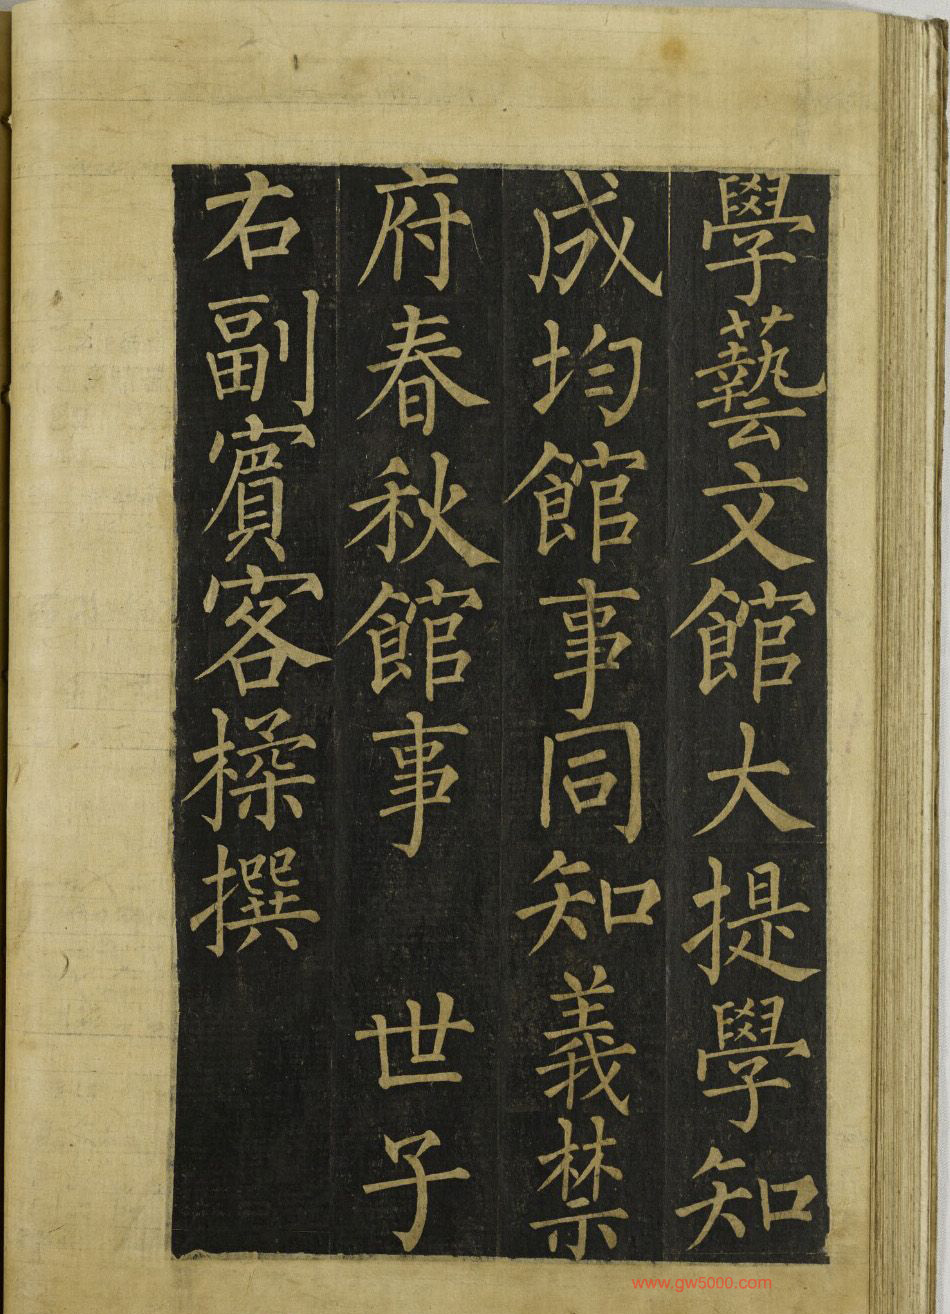 學藝文館大提學知
成均館事同知義禁
府春秋館事 世子
右副賓客橾撰
www.gw5000.com